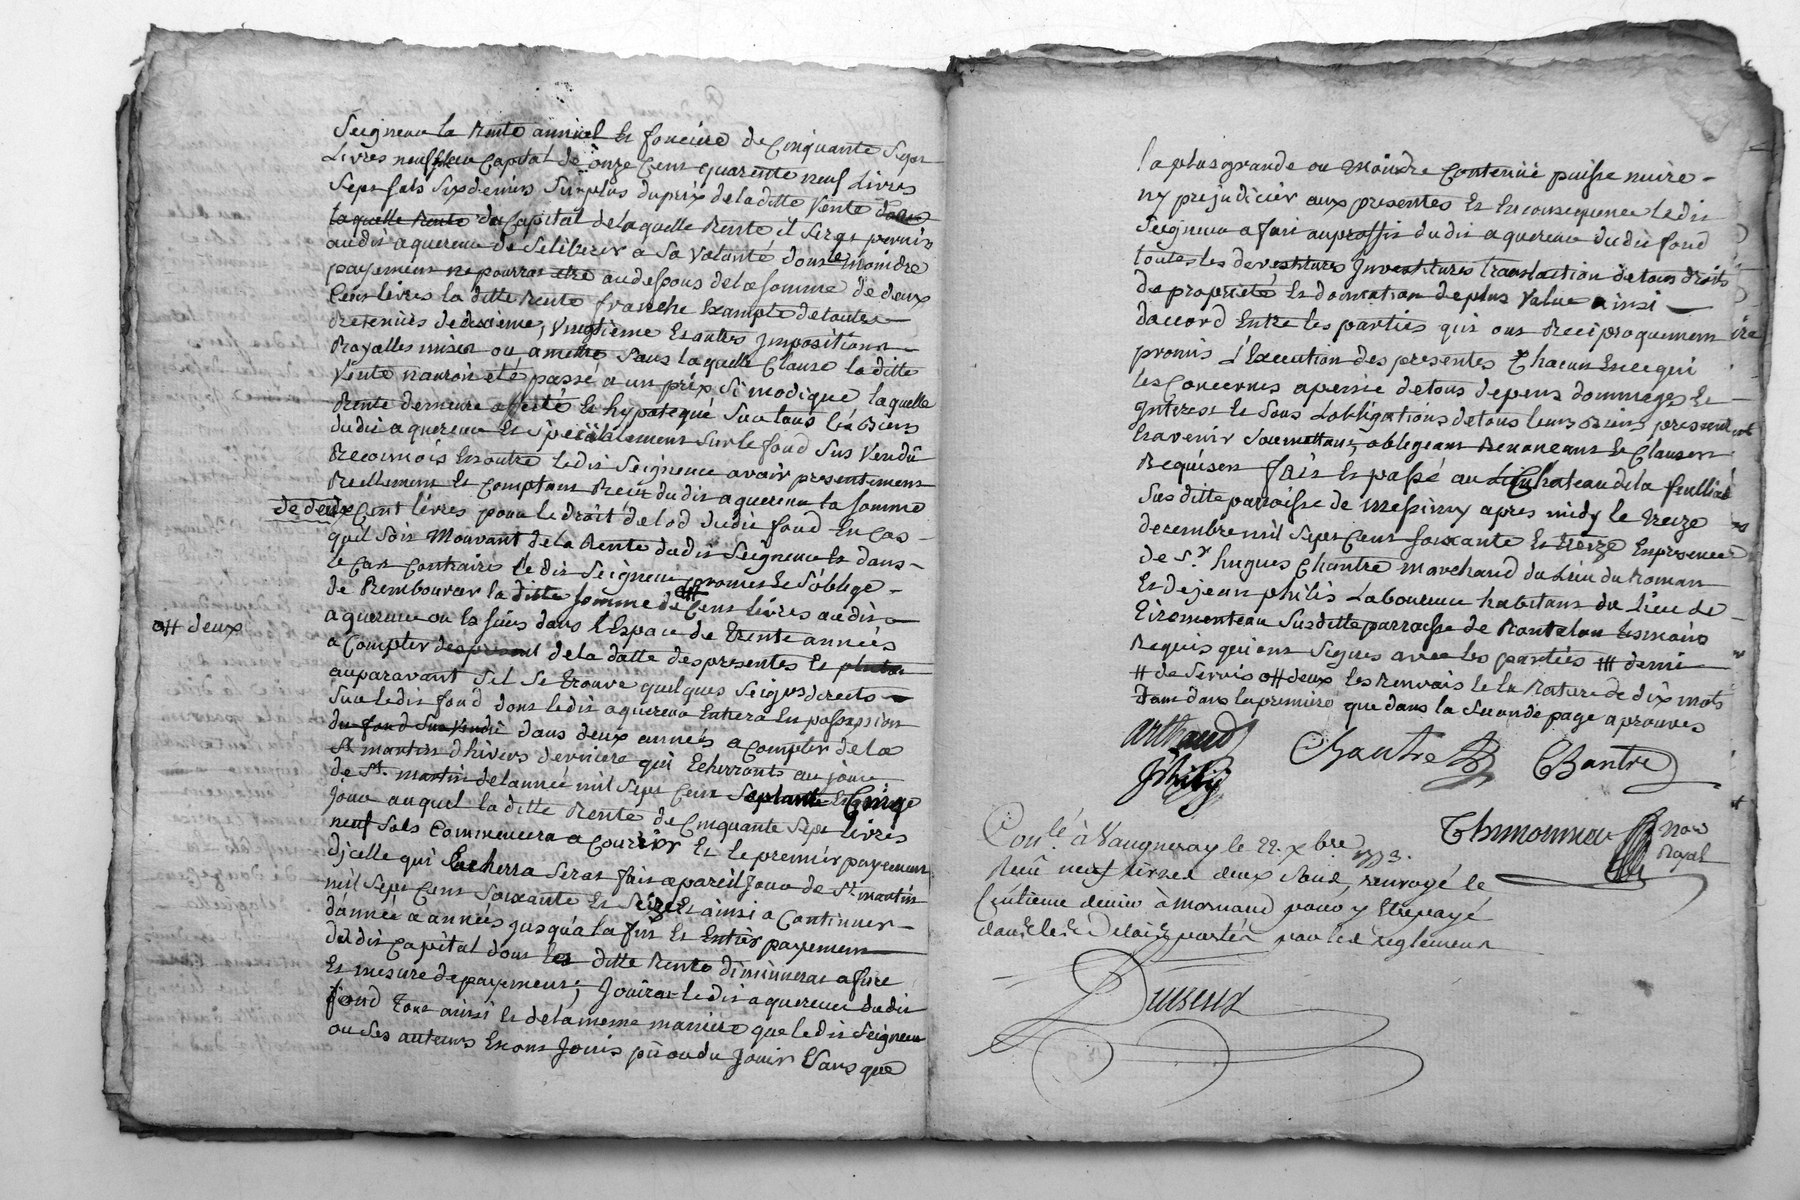 Seigneur la Rente annuel et fonciere de Cinquante Sept
Livres neuf sols au Capital de onze Cent quarente neuf Livres
Sept sols six deniers Surplus du prix de la ditte Vente dans
laquelle Rente du Capital de laquelle Rente il Seras permis
au dit aquereur de se liberer a Sa Volanté dont le moindre
payement ne pourras etre au dessous de la somme de deux
Cent livres la ditte Rente franche Exampte de toutes
Retenües de dixieme, Vingtieme Et autres Impositions
Royalles mises ou a mettre Sans laquelle Clause la ditte
Vente n'auroit eté passé a un prix Si modique laquelle
Rente demeure affecté Et hypotequé Sur tous les Biens
du dit aquereur Et Specialement Sur le fond Sus Vendü
Reconnois En outre le dit Seigneur avoir presentement
Reellement Et Comptant Receu du dit aquereur la somme
de deux Cent livres pour le droit de lod du dit fond En Cas
quil Soit Mouvant de la Rente du dit Seigneur Et dans
le Cas Contraire le dit Seigneur promet Et S'oblige
de Rembourser la ditte somme de Cent livres au dit
o++ deux
aquereur ou les siens dans l'Espace de Trente années
a Compter des present de la datte des presentes Et plutot
auparavant Sil Se trouve quelques Seigrs directs
Sur le dit fond dont le dit aquereur Entrera En possession
du fond Sus Vendü dans deux années a Compter de la
St martin d'hivers derniere qui Echerront au jour
de St. martin de l'année mil Sept Cent Septante Et Cinq
Jour auquel la ditte Rente de Cinquante Sept livres
neuf Sols Commencera a Courir Et le premier payement
d'jcelle qui Echerra Seras fait a pareil Jour de St martin
mil Sept Cent Soixante Et Seize Et ainsi a Continuer
d'année a années jusqu'a la fin Et Entier payement
du dit Capital dont la ditte Rente diminueras a fure
Et mesure de payement; Jouiras le dit aquereur du dit
fond Tout ainsi Et de la meme maniere que le dit Seigneur
ou Ses auteurs En ont Jouis pü ou du Jouir Sans que
la plus grande ou Moindre Contenüe puisse nuire
ny prejudicier aux presentes Et En consequence le dit
Seigneur a fait au proffit du dit aquereur du dit fond
toutes les devestitures Investitures translaction de tous droits
de proprieté Et donnation de plus Value ainsi
d'accord Entre les parties qui ont Reciproquement
promis l'Execution des presentes Chacun En ce qui
les Concernes a peine de tous depens dommages Et
Interest Et Sous l'obligations de tous leurs Biens presents
Et avenir Soumettant, obligeant Renonceant Et Clauses
Requises fait Et passé au Chateau de la feullié
Sus ditte parroisse de Messimy apres midy le treize
decembre mil Sept Cent Soixante Et treize En presence
de Sr. hugues Chantre marchand du Lieu du Roman
Et de jean philis Laboureur habitant du Lieu de
Giromonteau Susditte parroisse de Rontalon Temoins
Requis qui ont Signes avec les parties +++ demi
++ de Servis o++ deux les Renvois Et la Rature de dix mots
Tant dans la premiere que dans la Seconde page aprouvés
Arthaud
Chantre
Chantre
jphilis
Thimonnier
Nore
Royal
Conlé. à Vaugneray le 22. Xbre
1773.
Recu neuf livres deux Sous, renvoyé le
Centieme denier à Mornand pour y Etre payé
dans les Delais portés par les reglemens